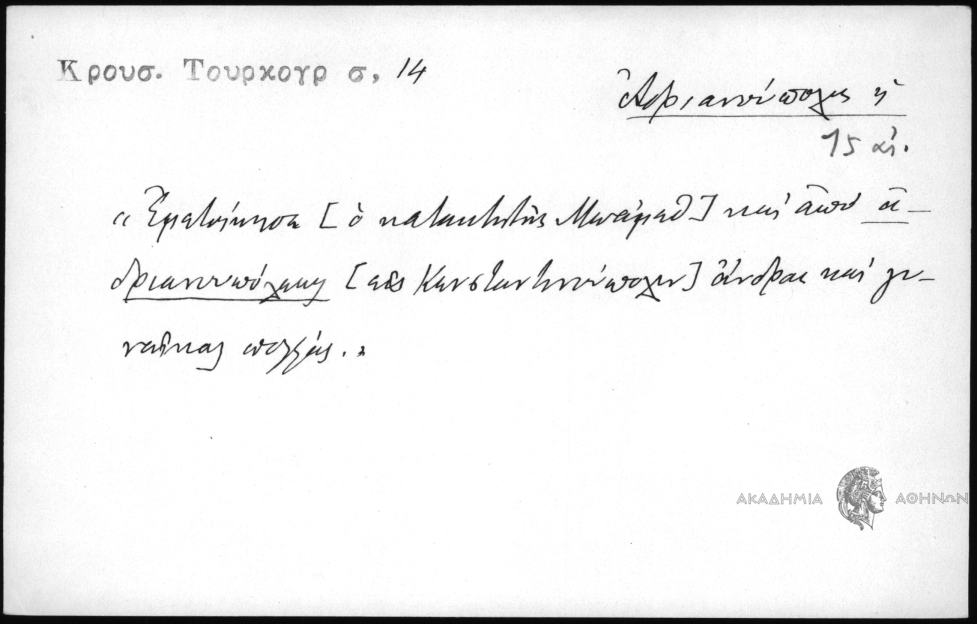 Κρουσ. Τουρκογρ σ, 14
Ἀδριανούπολις ἡ
15 αἰ.
« [ὁ κατακτητὴς Μωάμεθ] καὶ ἀπὸ ἀ-
δριανουπόλεως [εἰς Κωνσταντινούπολιν] ἄνδρας καὶ γυ-
ναῖκας πολλάς. »
ΑΚΑΔΗΜΙΑ ΑΘΗΝΩΝ